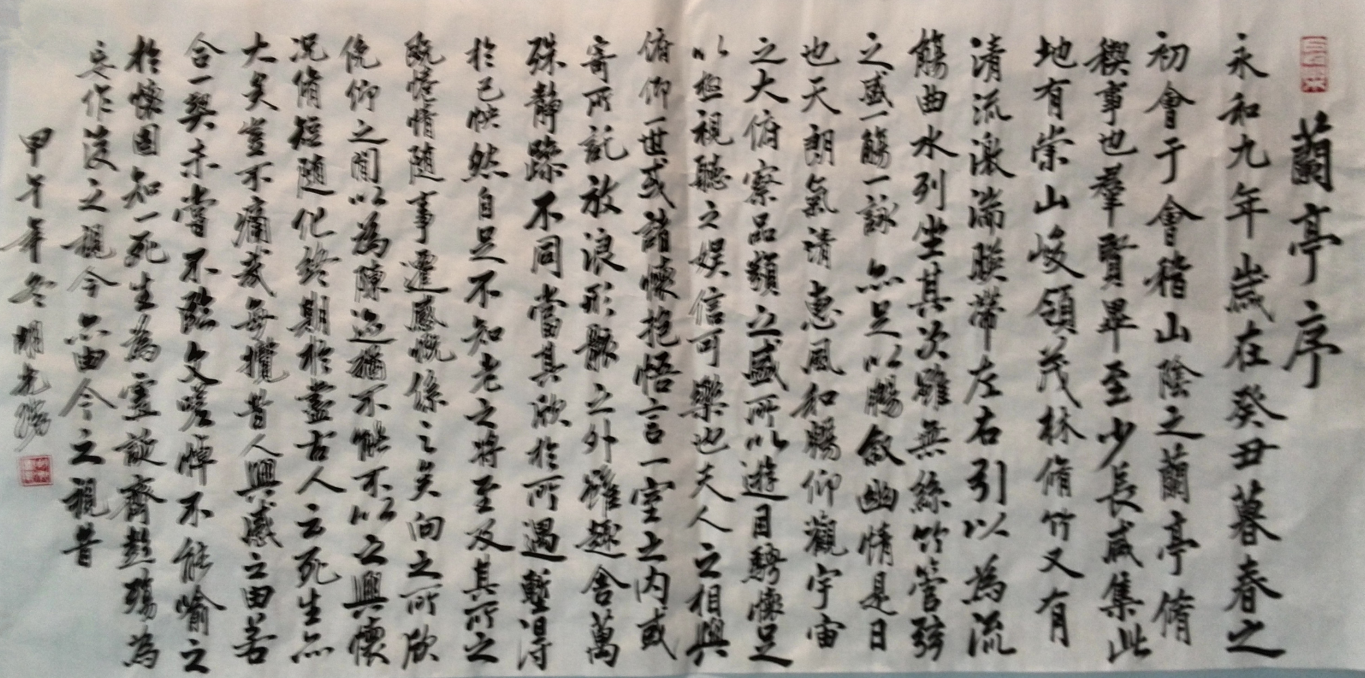 蘭亭序
永和九年歲在癸丑暮春之
初會于會稽山陰之蘭亭脩
稧事也羣賢畢至少長咸集此
地有崇山峻領茂林脩竹又有
清流激湍暎帶左右引以為流
觴曲水列坐其次雖無絲竹管弦
之盛一觴一詠亦足以暢敘幽情是日
也天朗氣清惠風和暢仰觀宇宙
之大俯察品類之盛所以遊目騁懷足
以極視聽之娛信可樂也夫人之相與
俯仰一世或諸懷抱悟言一室之内或
寄所託放浪形骸之外雖趣舍萬
殊靜躁不同當其欣於所遇蹔得
於己怏然自足不知老之將至及其所之
既惓情隨事遷感慨係之矣向之所欣
俛仰之間以為陳迹猶不能不以之興懷
況脩短隨化終期於盡古人云死生亦
大矣豈不痛哉每攬昔人興感之由若
合一契未嘗不臨文嗟悼不能喻之
於懷固知一死生為虛誕齊彭殤為
妄作後之視今亦由今之視昔
甲午年冬